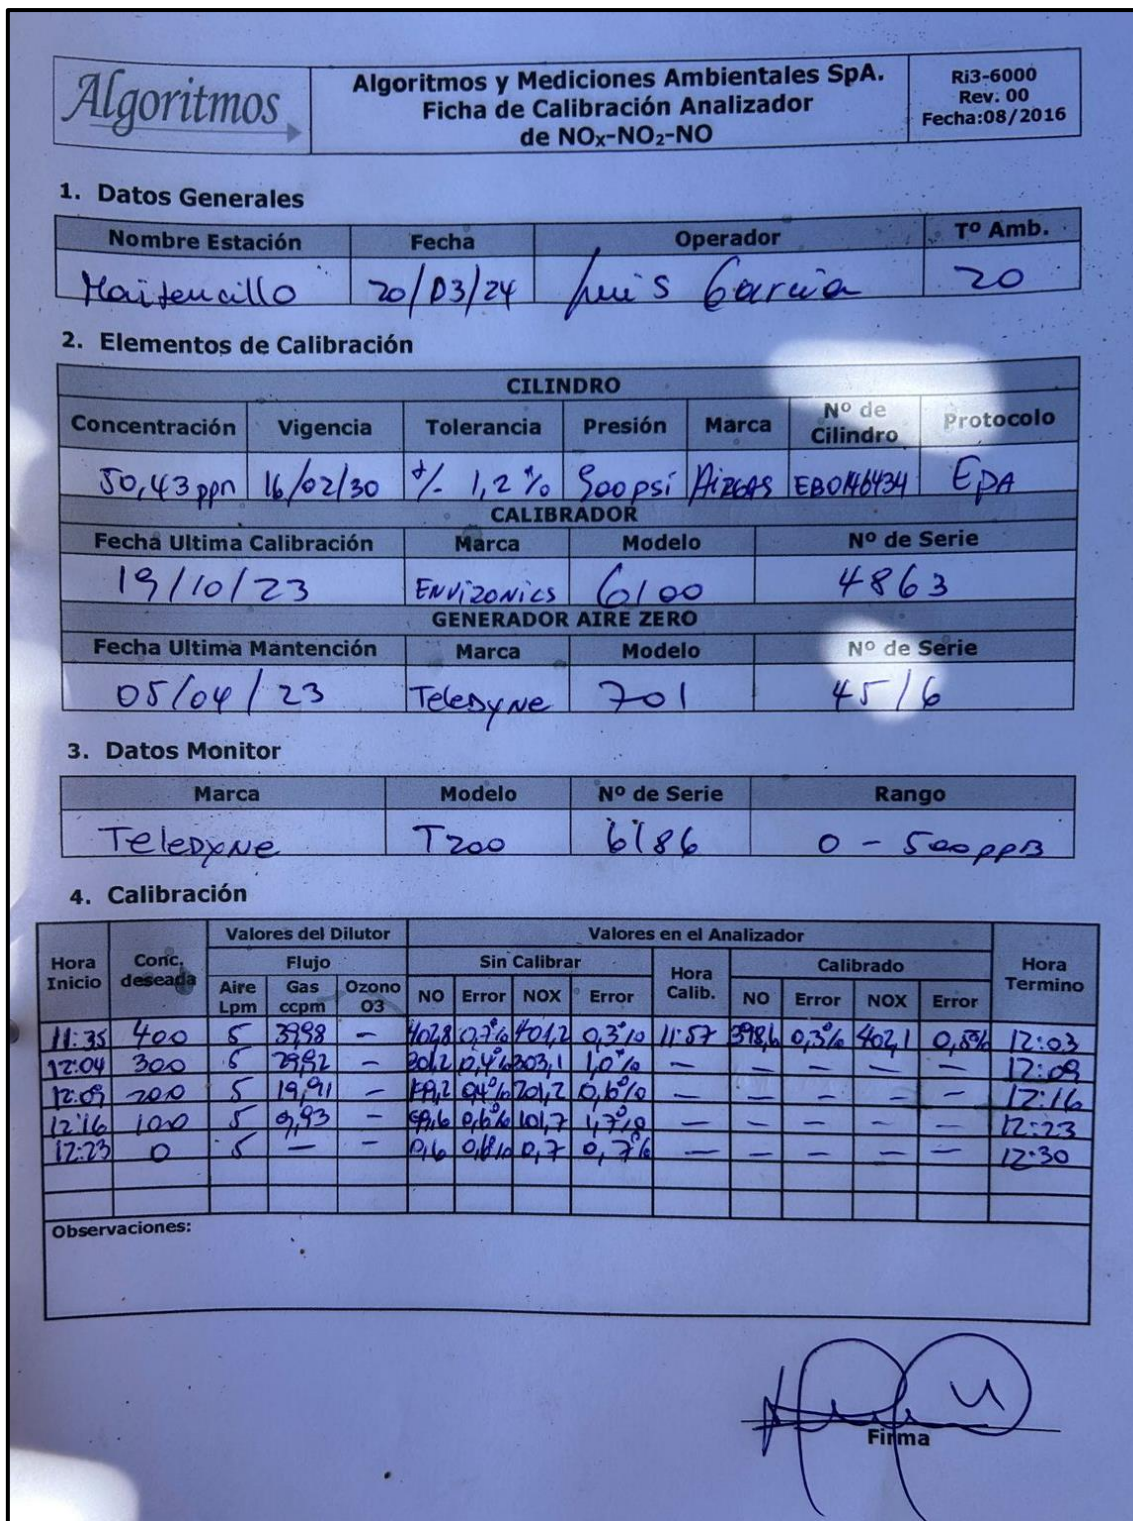 Algoritmos
Algoritmos y Mediciones Ambientales SpA.
Ficha de Calibración Analizador
de NOx-NO2-NO
Ri3-6000
Rev: 00
Fecha:08/2016
1. Datos Generales
Nombre Estación Fecha Operador Tº Amb.
Maitencillo 20/03/24 Luis Garcia 20
2. Elementos de Calibración
CILINDRO
Concentración Vigencia Tolerancia Presión Marca Nº de Cilindro Protocolo
50,43 ppn 16/02/30 +/- 1,2 % 900 psi AiRGAS EB0146434 EPA
CALIBRADOR
Fecha Ultima Calibración Marca Modelo Nº de Serie
19/10/23 ENViRONiCS 6100 4863
GENERADOR AIRE ZERO
Fecha Ultima Mantención Marca Modelo Nº de Serie
05/04/23 TeleDyNe 701 4516
3. Datos Monitor
Marca Modelo Nº de Serie Rango
TeleDyNe T200 6186 0 - 500 ppB
4. Calibración
Valores del Dilutor Valores en el Analizador
Hora Inicio Conc. deseada Flujo Sin Calibrar Hora Calib. Calibrado Hora Termino
Aire Lpm Gas ccpm Ozono O3 NO Error NOX Error NO Error NOX Error
11:35 400 5 39,98 - 402,8 0,7% 401,2 0,3% 11:57 398,6 0,3% 402,1 0,5% 12:03
12:04 300 5 29,92 - 301,2 0,4% 303,1 1,0% - - - - - 12:09
12:09 200 5 19,91 - 199,2 0,4% 201,2 0,6% - - - - - 12:16
12:16 100 5 9,93 - 99,6 0,6% 101,7 1,7% - - - - - 12:23
12:23 0 5 - - 0,6 0,6% 0,7 0,7% - - - - - 12:30
Observaciones:
Firma